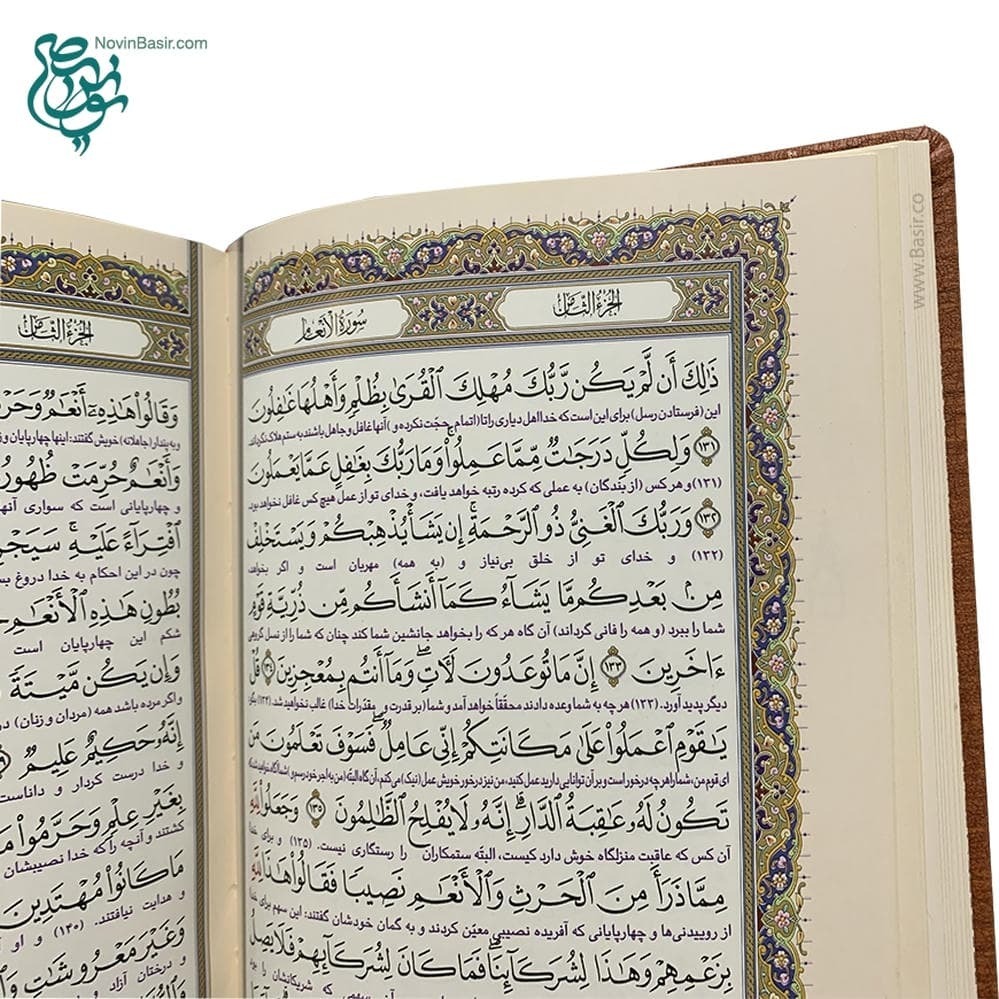 NovinBasir.com
www.Basir.co
الجزء الثامن
سورة الأنعام
ذَٰلِكَ أَن لَّمْ يَكُن رَّبُّكَ مُهْلِكَ ٱلْقُرَىٰ بِظُلْمٍ وَأَهْلُهَا غَٰفِلُونَ
این (فرستادن رسل) برای این است که خدا اهل دیاری را تا (اتمام حجّت نکرده و) آنها غافل و جاهل باشند به ستم هلاک نگرداند.
﴿١٣١﴾ وَلِكُلٍّ دَرَجَٰتٌ مِّمَّا عَمِلُوا۟ وَمَا رَبُّكَ بِغَٰفِلٍ عَمَّا يَعْمَلُونَ
(۱۳۱) و هر کس (از بندگان) به عملی که کرده رتبه خواهد یافت، و خدای تو از عمل هیچ کس غافل نخواهد بود.
﴿١٣٢﴾ وَرَبُّكَ ٱلْغَنِىُّ ذُو ٱلرَّحْمَةِ إِن يَشَأْ يُذْهِبْكُمْ وَيَسْتَخْلِفْ
(۱۳۲) و خدای تو از خلق بی‌نیاز و (به همه) مهربان است و اگر بخواهد
مِنۢ بَعْدِكُم مَّا يَشَآءُ كَمَآ أَنشَأَكُم مِّن ذُرِّيَّةِ قَوْمٍ
شما را ببرد (و همه را فانی گرداند) آن گاه هر که را بخواهد جانشین شما کند چنان که شما را از نسل گروهی
ءَاخَرِينَ ﴿١٣٣﴾ إِنَّ مَا تُوعَدُونَ لَءَاتٍ وَمَآ أَنتُم بِمُعْجِزِينَ ﴿١٣٤﴾ قُلْ
دیگر پدید آورد. (۱۳۳) هر چه به شما وعده دادند محقّقاً خواهد آمد و شما (بر قدرت و مقدّرات خدا) غالب نخواهید شد. (۱۳۴) بگو:
يَٰقَوْمِ ٱعْمَلُوا۟ عَلَىٰ مَكَانَتِكُمْ إِنِّى عَامِلٌ فَسَوْفَ تَعْلَمُونَ مَن
ای قوم من، شما را هر چه در خور است و بر آن توانایی دارید عمل کنید، من نیز در خور خویش عمل (نیک) می‌کنم، آن گاه البتّه
تَكُونُ لَهُۥ عَٰقِبَةُ ٱلدَّارِ إِنَّهُۥ لَا يُفْلِحُ ٱلظَّٰلِمُونَ ﴿١٣٥﴾ وَجَعَلُوا۟ لِلَّهِ
آن کس که عاقبت منزلگاه خوش دارد کیست، البتّه ستمکاران را رستگاری نیست. (۱۳۵) و برای خدا
مِمَّا ذَرَأَ مِنَ ٱلْحَرْثِ وَٱلْأَنْعَٰمِ نَصِيبًا فَقَالُوا۟ هَٰذَا لِلَّهِ
از روییدنی‌ها و چهارپایانی که آفریده نصیبی معیّن کردند و به گمان خودشان گفتند: این سهم برای خدا
بِزَعْمِهِمْ وَهَٰذَا لِشُرَكَآئِنَا فَمَا كَانَ لِشُرَكَآئِهِمْ فَلَا يَصِلُ
سهمی که شریکانشان را بود
الجزء الثامن
وَقَالُوا۟ هَٰذِهِۦٓ أَنْعَٰمٌ وَحَرْ
و به پندار (جاهلانه) خویش گفتند: اینها چهارپایان و
وَأَنْعَٰمٌ حُرِّمَتْ ظُهُورُ
و چهارپایانی است که سواری آنها
ٱفْتِرَآءً عَلَيْهِ سَيَجْزِ
چون در این احکام به خدا دروغ
بُطُونِ هَٰذِهِ ٱلْأَنْعَٰمِ
شکم این چهارپایان است
وَإِن يَكُن مَّيْتَةً
و اگر مرده باشد همه (مردان و زنان) در
إِنَّهُۥ حَكِيمٌ عَلِيمٌ
و خدا درست کردار و داناست
بِغَيْرِ عِلْمٍ وَحَرَّمُوا۟ مَا
کشتند و آنچه را که خدا نصیبشان
مَا كَانُوا۟ مُهْتَدِينَ
و هدایت نیافتند. (۱۴۰) و او
وَغَيْرَ مَعْرُوشَٰتٍ وَٱل
و درختان آزاد